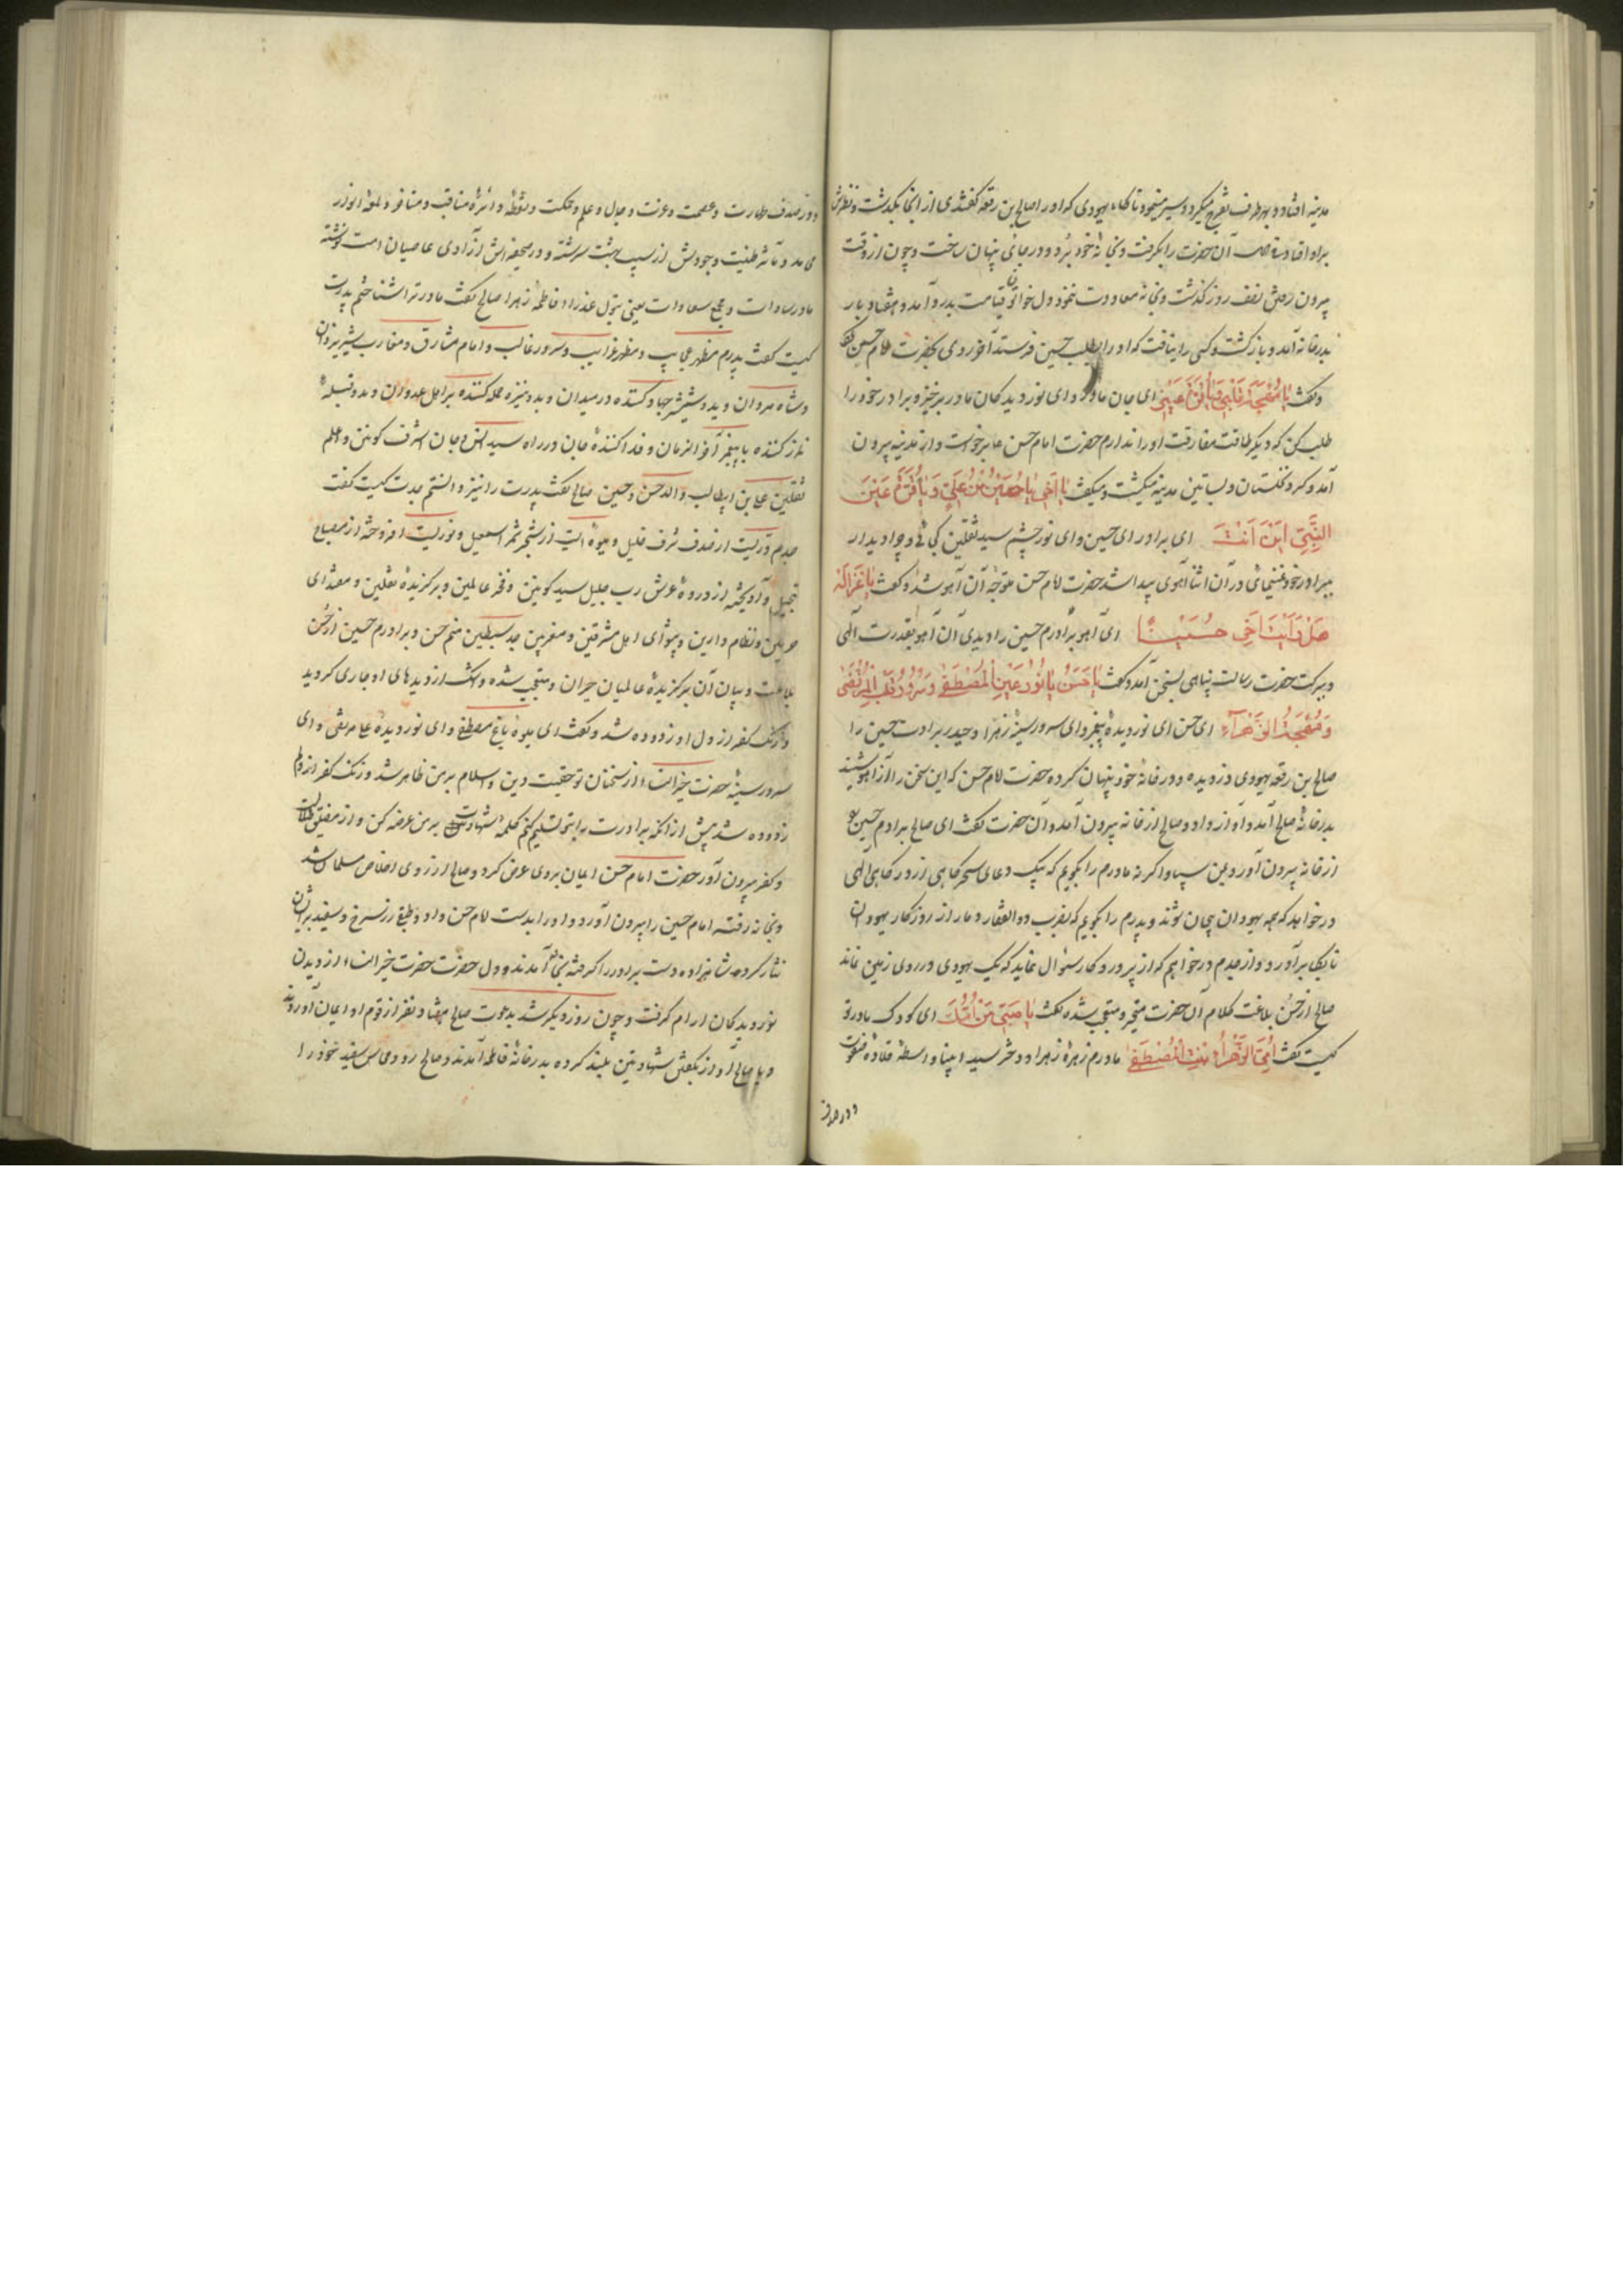 مدینه افتاد و بهر طرف تفرج میکرد و سیر مینمود تا گاه یهودی که او را صالح بن رقعه گفتندی از آنجا بگذشت و نظرش
براو افتاد آن حضرت را بگرفت و بخانه خود برد و در جائی پنهان ساخت و چون از وقت
بیرون رفتن نصف روز گذشت و بخانه معاودت ننمود دل خواتون قیامت بدر و آمد و هفتاد بار
بدر خانه آمد و باز گشت و کسی را نیافت که او را بطلب حسین فرستد آخر روی بحضرت امام حسن کرد
و گفت یا مهجة قلبی یا قرة عینی ای جان مادر و ای نور دیدگان مادر برخیز و برادر خود را
طلب کن که دیگر طاقت مفارقت او را ندارم حضرت امام حسن برخواست و از مدینه بیرون
آمد و گرد نخلستان و بساتین مدینه میگشت و میگفت یا اخی یا حسین بن علی و یا قرة عین
النبی این انت ای برادر ای حسین و ای نور چشم سید ثقلین کجائی و چرا دیدار
ببرادر خود نمینمائی در آن اثنا آهوی پیدا شد حضرت امام حسن متوجه آن آهو شد و گفت یا غزاله
هل رایت اخی حسینا ای آهو برادرم حسین را دیدی آن آهو بقدرت الهی
و ببرکت حضرت رسالت پناهی بسخن آمد و گفت یا حسن یا نور عین المصطفی و سرور قلب المرتضی
و مهجة الزهراء ای حسن ای نور دیده پیغمبر و ای سرور سینه زهرا و حیدر برادرت حسین را
صالح بن رقعه یهودی دزدیده و در خانه خود پنهان کرده حضرت امام حسن که این سخن را از آهو شنید
بدر خانه صالح آمد و آواز داد و صالح از خانه بیرون آمد و آن حضرت گفت ای صالح برادرم حسین را
از خانه بیرون آور و بمن سپار و اگر نه مادرم را بگویم که بیک دعای سحرگاهی از درگاه الهی
درخواهد که همه یهودان بیجان شوند و پدرم را بگویم که بضرب ذوالفقار دمار از روزگار یهودان
تاریک برآورد و از جدم درخواهم که از پروردگار سئوال نماید که یک یهودی در روی زمین نماند
صالح از حسن بلاغت کلام آن حضرت متحیر و متعجب شده گفت یا صبی من امک ای کودک مادر تو
کیست گفت امی الزهراء بنت المصطفی مادرم زهره زهرا و دختر سید انبیا واسطه قلاده صفوت
و در صدف
و در صدف طهارت و عصمت و عزت و جلال و علم و حکمت و نقطه دائره مناقب و مفاخر و لمعه انوار
محامد و مآثر طینت وجودش از سیب بهشت سرشته و در صحیفه اش آزادی عاصیان امت نوشته
مادر سادات و مجمع سعادات یعنی بتول عذرا و فاطمه زهرا صالح گفت مادرت را شناختم پدرت
کیست گفت پدرم مظهر عجایب و مظهر غرایب و سرور غالب و امام مشارق و مغارب شیر یزدان
و شاه مردان و بدو شمشیر جهاد کننده در میدان و بدو نیزه حمله کننده بر اهل عدوان و بدو قبله
نماز کننده با پیغمبر آخر الزمان و فدا کننده جان در راه سید انس و جان اشرف کونین و اعلم
ثقلین علی بن ابیطالب والد حسن و حسین صالح گفت پدرت را نیز دانستم جدت کیست گفت
جدم دریست از صدف شرف خلیل و میوه ایست از شجر ثمر اسمعیل و نوریست افروخته از مصباح
تبجیل و آویخته از ذروه عرش رب جلیل سید کونین و فخر عالمین و برگزیده ثقلین و مقتدای
حرمین و نظام دارین و پیشوای اهل مشرقین و مغربین جد سبطین منم حسن و برادرم حسین از حسن
بلاغت و بیان آن برگزیده عالمیان حیران و متعجب شده و اشک از دیدهای او جاری گردید
و زنگ کفر از دل او زدوده شد و گفت ای میوه باغ مصطفی و ای نور دیده علی مرتضی و ای
سرور سینه حضرت خیر النساء از سخنان تو حقیقت دین و اسلام بر من ظاهر شد و زنگ کفر از دلم
زدوده شد پیش از آنکه برادرت را بتو تسلیم کنم کلمه شهادت بر من عرضه کن و از مضیق ظلمات
و کفر بیرون آور حضرت امام حسن ایمان بر وی عرض کرد و صالح از روی اخلاص مسلمان شد
و بخانه رفته امام حسین را بیرون آورد و او را بدست امام حسن داد و طبقی زر سرخ و سفید بر ایشان
نثار کرده شاهزاده دست برادر را گرفته بخانه آمدند و دل حضرت خیر النساء از دیدن
نور دیدگان آرام گرفت و چون روز دیگر شد بدعوت صالح هفتاد نفر از قوم او ایمان آوردند
و با صالح آواز بگفتن شهادتین بلند کرده بدر خانه فاطمه آمدند و صالح رو و محاسن سفید خود را